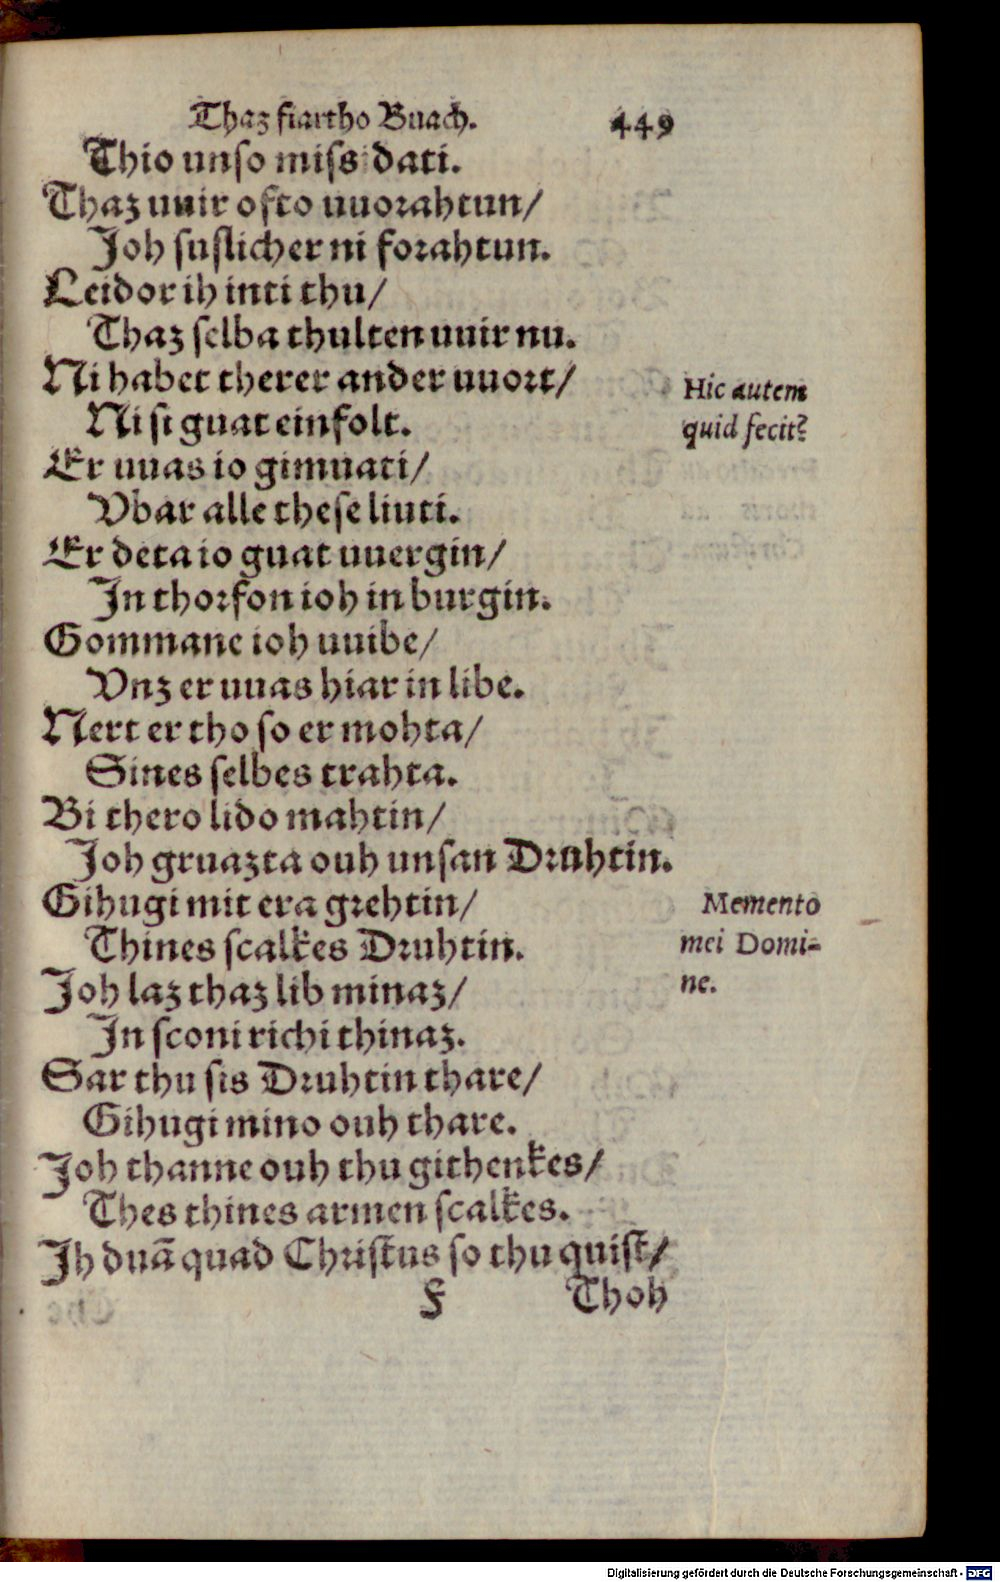 Thaz fiartho Buach. 449
Thio unſo miſsidati.
Thaz uuir ofto uuorahtun/
Joh ſuſlicher ni forahtun.
Leidor ih inti thu/
Thaz ſelba thulten uuir nu.
Ni habet therer ander uuort/
Ni ſi guat einfolt.
Hic autem
quid fecit?
Er uuas io gimuati/
Vbar alle theſe liuti.
Er deta io guat uuergin/
In thorfon ioh in burgin.
Gommane ioh uuibe/
Vnz er uuas hiar in libe.
Nert er tho ſo er mohta/
Sines ſelbes trahta.
Bi thero lido mahtin/
Joh gruazta ouh unſan Druhtin.
Gihugi mit era grehtin/
Thines ſcalkes Druhtin.
Joh laz thaz lib minaz/
In ſconi richi thinaz.
Memento
mei Domi-
ne.
Sar thu ſis Druhtin thare/
Gihugi mino ouh thare.
Joh thanne ouh thu githenkes/
Thes thines armen ſcalkes.
Ih duã quad Chriſtus ſo thu quiſt/
F Thoh
Digitalisierung gefördert durch die Deutsche Forschungsgemeinschaft - DFG